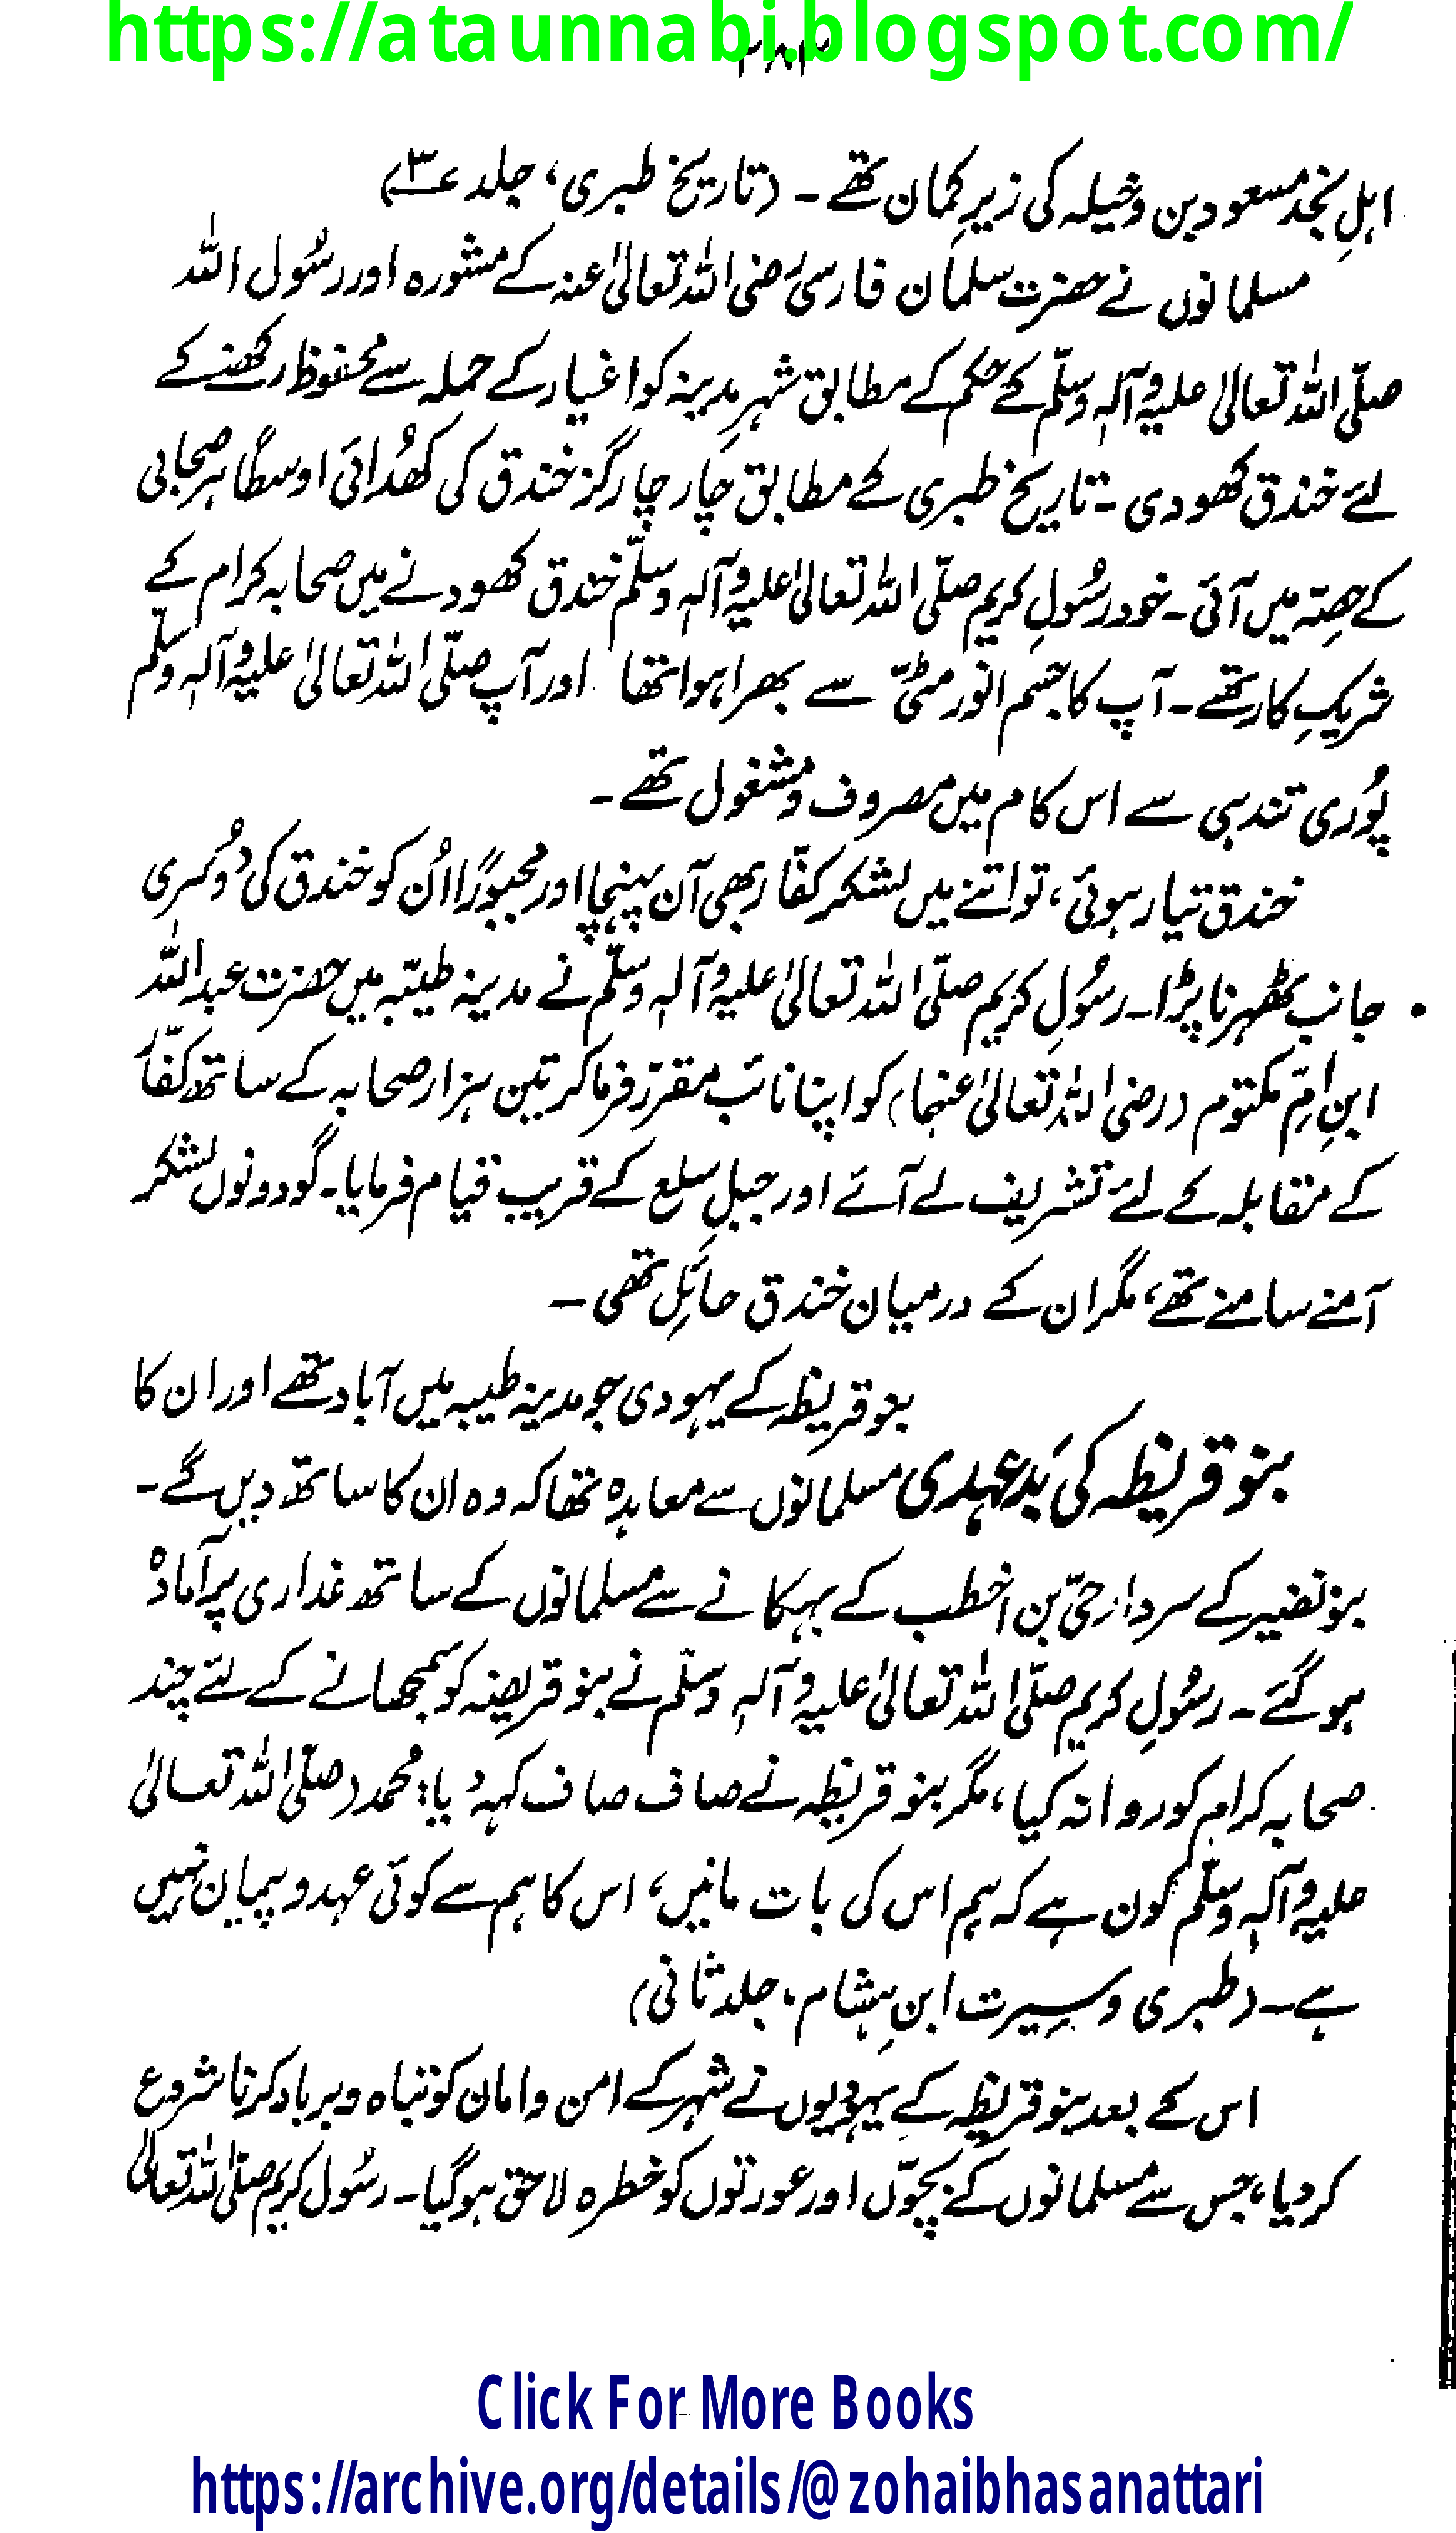 https://ataunnabi.blogspot.com/
۲۸۲
اہلِ نجد مسعود بن دخیلہ کی زیرِ کمان تھے ۔ (تاریخ طبری، جلد ۳)
مسلمانوں نے حضرت سلمان فارسی رضی اللہ تعالیٰ عنہ کے مشورہ اور رسُول اللہ
صلّی اللہ تعالیٰ علیہ وآلہٖ وسلّم کے حکم کے مطابق شہرِ مدینہ کو اغیار کے حملہ سے محفوظ رکھنے کے
لئے خندق کھودی ۔ تاریخ طبری کے مطابق چار چار گز خندق کی کھُدائی اوسطًا ہر صحابی
کے حِصّہ میں آئی ۔ خود رسُولِ کریم صلّی اللہ تعالیٰ علیہ وآلہٖ وسلّم خندق کھودنے میں صحابہ کرام کے
شریکِ کار تھے ۔ آپ کا جسم انور مٹّی سے بھرا ہوا تھا اور آپ صلّی اللہ تعالیٰ علیہ وآلہٖ وسلّم
پُوری تندہی سے اس کام میں مصروف و مشغول تھے ۔
خندق تیار ہوئی، تو اتنے میں لشکر کفّار بھی آن پہنچا اور مجبورًا اُن کو خندق کی دُوسری
جانب ٹھہرنا پڑا ۔ رسُولِ کریم صلّی اللہ تعالیٰ علیہ وآلہٖ وسلّم نے مدینہ طیّبہ میں حضرت عبداللہ
ابنِ امِّ مکتوم (رضی اللہ تعالیٰ عنہما) کو اپنا نائب مقرّر فرما کر تین ہزار صحابہ کے ساتھ کفّار
کے مقابلہ کے لئے تشریف لے آئے اور جبلِ سلع کے قریب قیام فرمایا ۔ گو دونوں لشکر
آمنے سامنے تھے، مگر ان کے درمیان خندق حائل تھی ۔
بنو قریظہ کی بَدعہدی
بنو قریظہ کے یہودی جو مدینہ طیبہ میں آباد تھے اور ان کا
مسلمانوں سے معاہدہ تھا کہ وہ ان کا ساتھ دیں گے ۔
بنو نضیر کے سردار حیّ بن اخطب کے بہکانے سے مسلمانوں کے ساتھ غداری پر آمادہ
ہو گئے ۔ رسُولِ کریم صلّی اللہ تعالیٰ علیہ وآلہٖ وسلّم نے بنو قریضہ کو سمجھانے کے لئے چند
صحابہ کرام کو روانہ کیا، مگر بنو قریظہ نے صاف صاف کہہ دیا: محمد (صلّی اللہ تعالیٰ
علیہ وآلہٖ وسلّم کون ہے کہ ہم اس کی بات مانیں، اس کا ہم سے کوئی عہد و پیمان نہیں
ہے ۔ (طبری و سیرت ابنِ ہشام، جلد ثانی)
اس کے بعد بنو قریظہ کے یہودیوں نے شہر کے امن و امان کو تباہ و برباد کرنا شروع
کر دیا، جس سے مسلمانوں کے بچّوں اور عورتوں کو خطرہ لاحق ہو گیا ۔ رسُول کریم صلّی اللہ تعالیٰ
Click For More Books
https://archive.org/details/@zohaibhasanattari